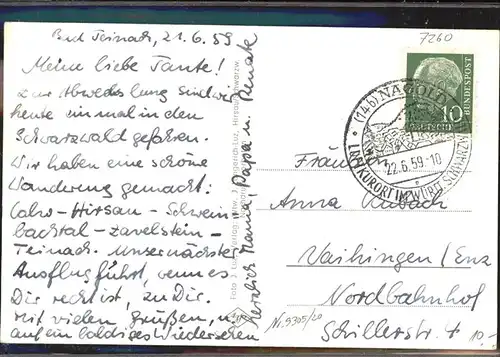 Bad Teinach, 21.6.59
Meine liebe Tante!
Zur Abwechslung sind wir
heute einmal in den
Schwarzwald gefahren.
Wir haben eine schöne
Wanderung gemacht:
Calw-Hirsau-Schwein
bachtal-Zavelstein-
Teinach. Unser nächster
Ausflug führt, wenn es
Dir recht ist, zu Dir.
Mit vielen Grüßen, u.
auf ein baldiges Wiedersehen
Herzlich Mama, Papa u. Renate
7260
10
DEUTSCHE BUNDESPOST
(14b) NAGOLD
22.6.59-10
LUFTKURORT IM WÜRTT. SCHWARZW.
Fräulein
Anna
Vaihingen/Enz
Nordbahnhof
Schillerstr. 4
Nr. 9305/20
10.-